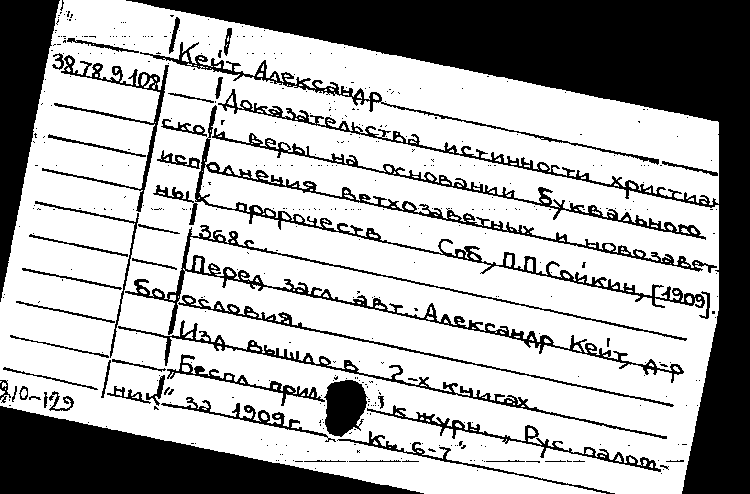 Кейт, Александр
38.78.9.108
Доказательства истинности христиан-
ской веры на основании буквального
исполнения ветхозаветных и новозавет-
ных пророчеств. Спб, П.П.Сойкин, [1909].
368 с.
Перед загл. авт.: Александр Кейт, д-р
богословия.
Изд. вышло в 2-х книгах.
"Беспл. прил. к журн. "Рус. палом-
ник" за 1909г. Кн. 6-7"
910-129